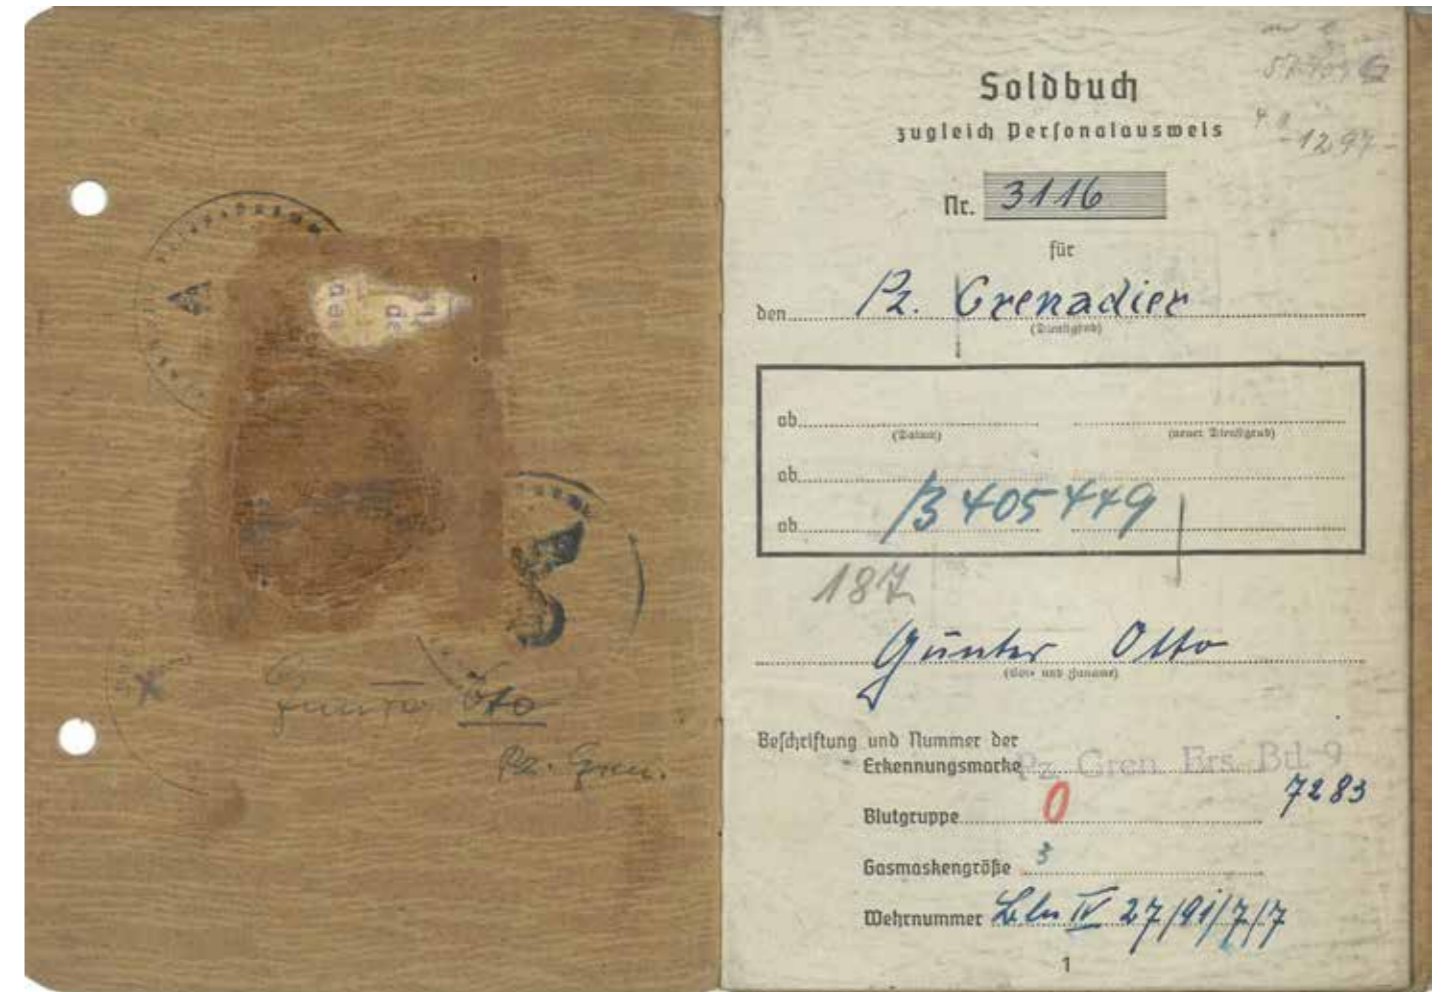 Otto
Pz. Gren.
Soldbuch
zugleich Personalausweis
-1297-
Nr. 3116
für
den Pz. Grenadier
(Dienstgrad)
ab
(Datum) (neuer Dienstgrad)
ab
B 405449
ab
187
Günter Otto
(Vor- und Zuname)
Beschriftung und Nummer der
Erkennungsmarke Pz. Gren. Ers. Btl. 9
7283
Blutgruppe 0
Gasmaskengröße 3
Wehrnummer Bln IV 27/91/7/7
1